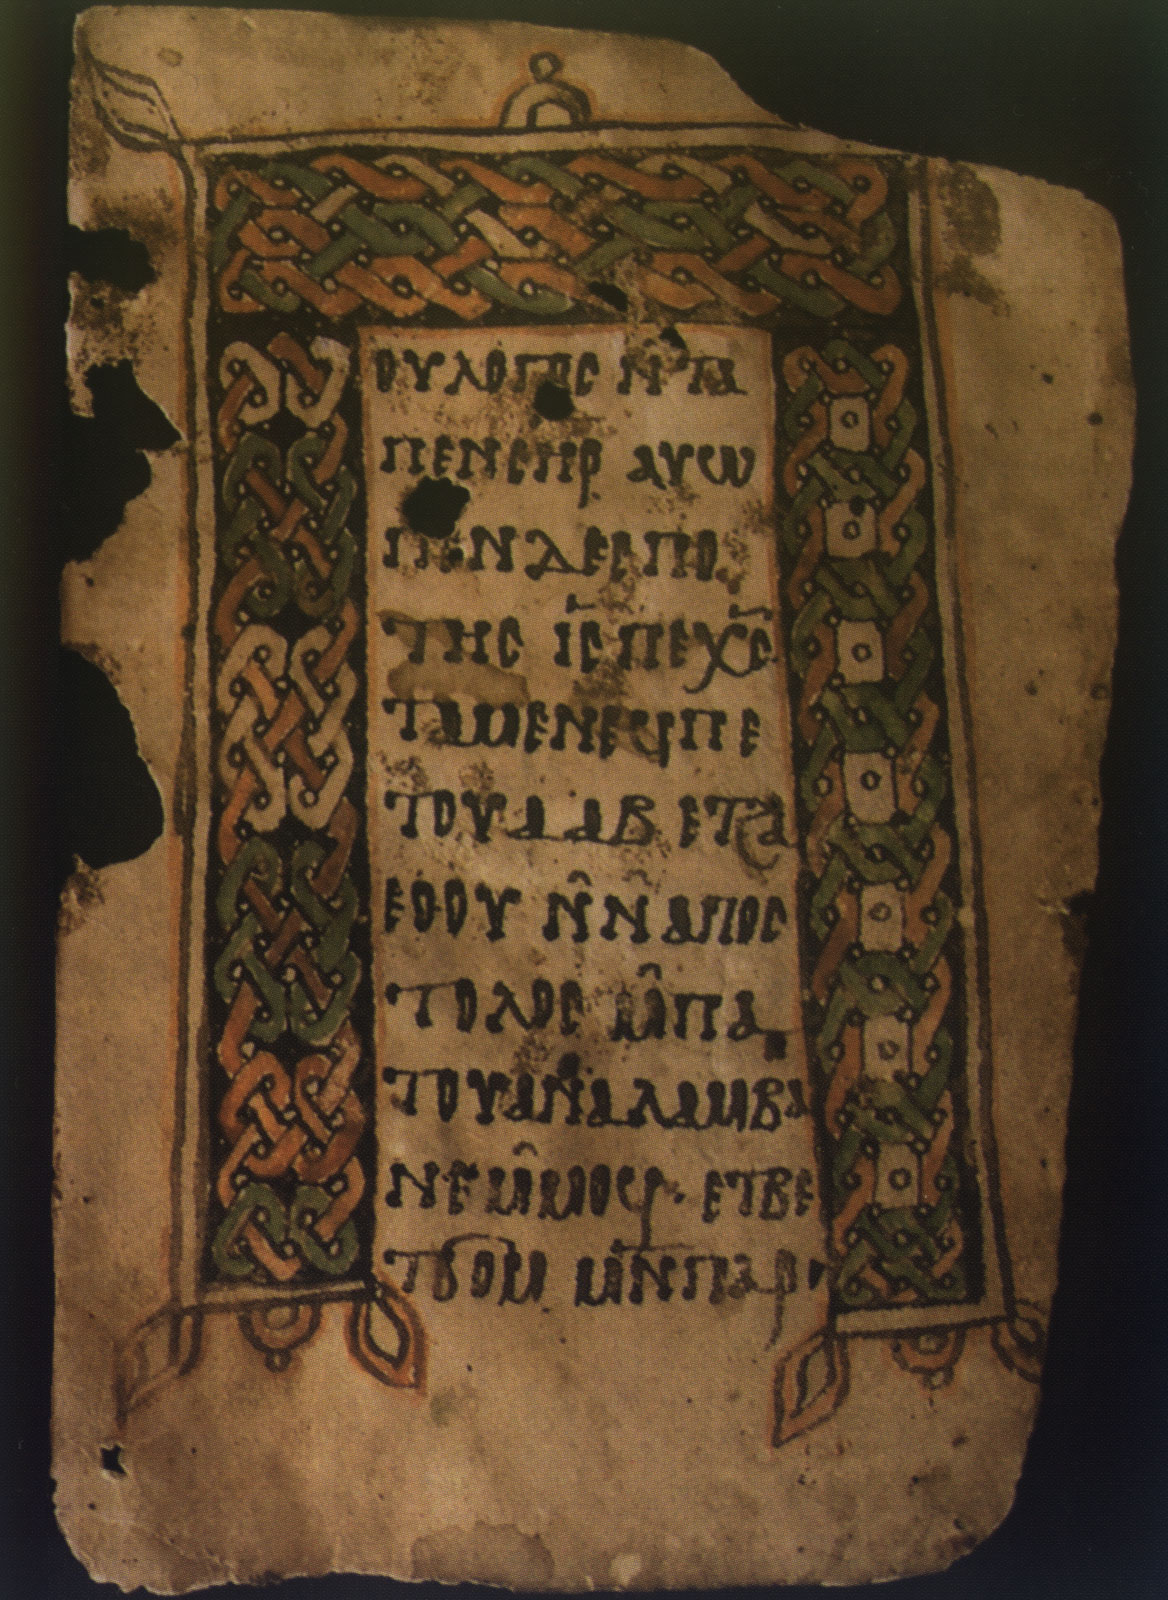 ⲟⲩⲗⲟⲅⲟⲥ ⲛⲧⲁ
ⲡⲉⲛⲥⲏⲣ ⲁⲩⲱ
ⲡⲉⲛⲇⲉⲥⲡⲟ
ⲧⲏⲥ ⲓ̅ⲥ̅ ⲡⲉⲭ̅ⲥ̅
ⲧⲁⲙⲉⲛⲉϥⲡⲉ
ⲧⲟⲩⲁⲁⲃ ⲉⲧⲁ
ⲉⲟⲟⲩ ⲛ̂ⲛ̂ⲁⲡⲟⲥ
ⲧⲟⲗⲟⲥ ⲙ̂ⲡⲁ
ⲧⲟⲩⲁⲛⲁⲗⲁⲙⲃⲁ
ⲛⲉ ⲙ̂ⲙⲟϥ· ⲉⲧⲃⲉ
ⲧϭⲟⲙ ⲙ̅ⲛ̅ⲡⲁⲣ